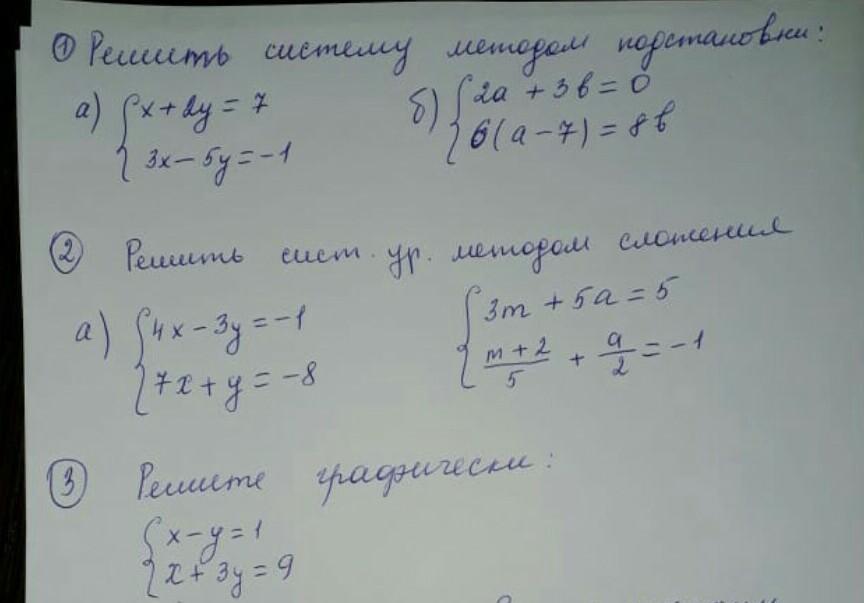 ① Решить систему методом подстановки:
а) { x + 2y = 7 б) { 2a + 3b = 0
3x − 5y = −1 6(a − 7) = 8b
② Решить сист. ур. методом сложения
а) { 4x − 3y = −1 { 3m + 5a = 5
7x + y = −8 (m + 2)/5 + a/2 = −1
③ Решите графически:
{ x − y = 1
x + 3y = 9